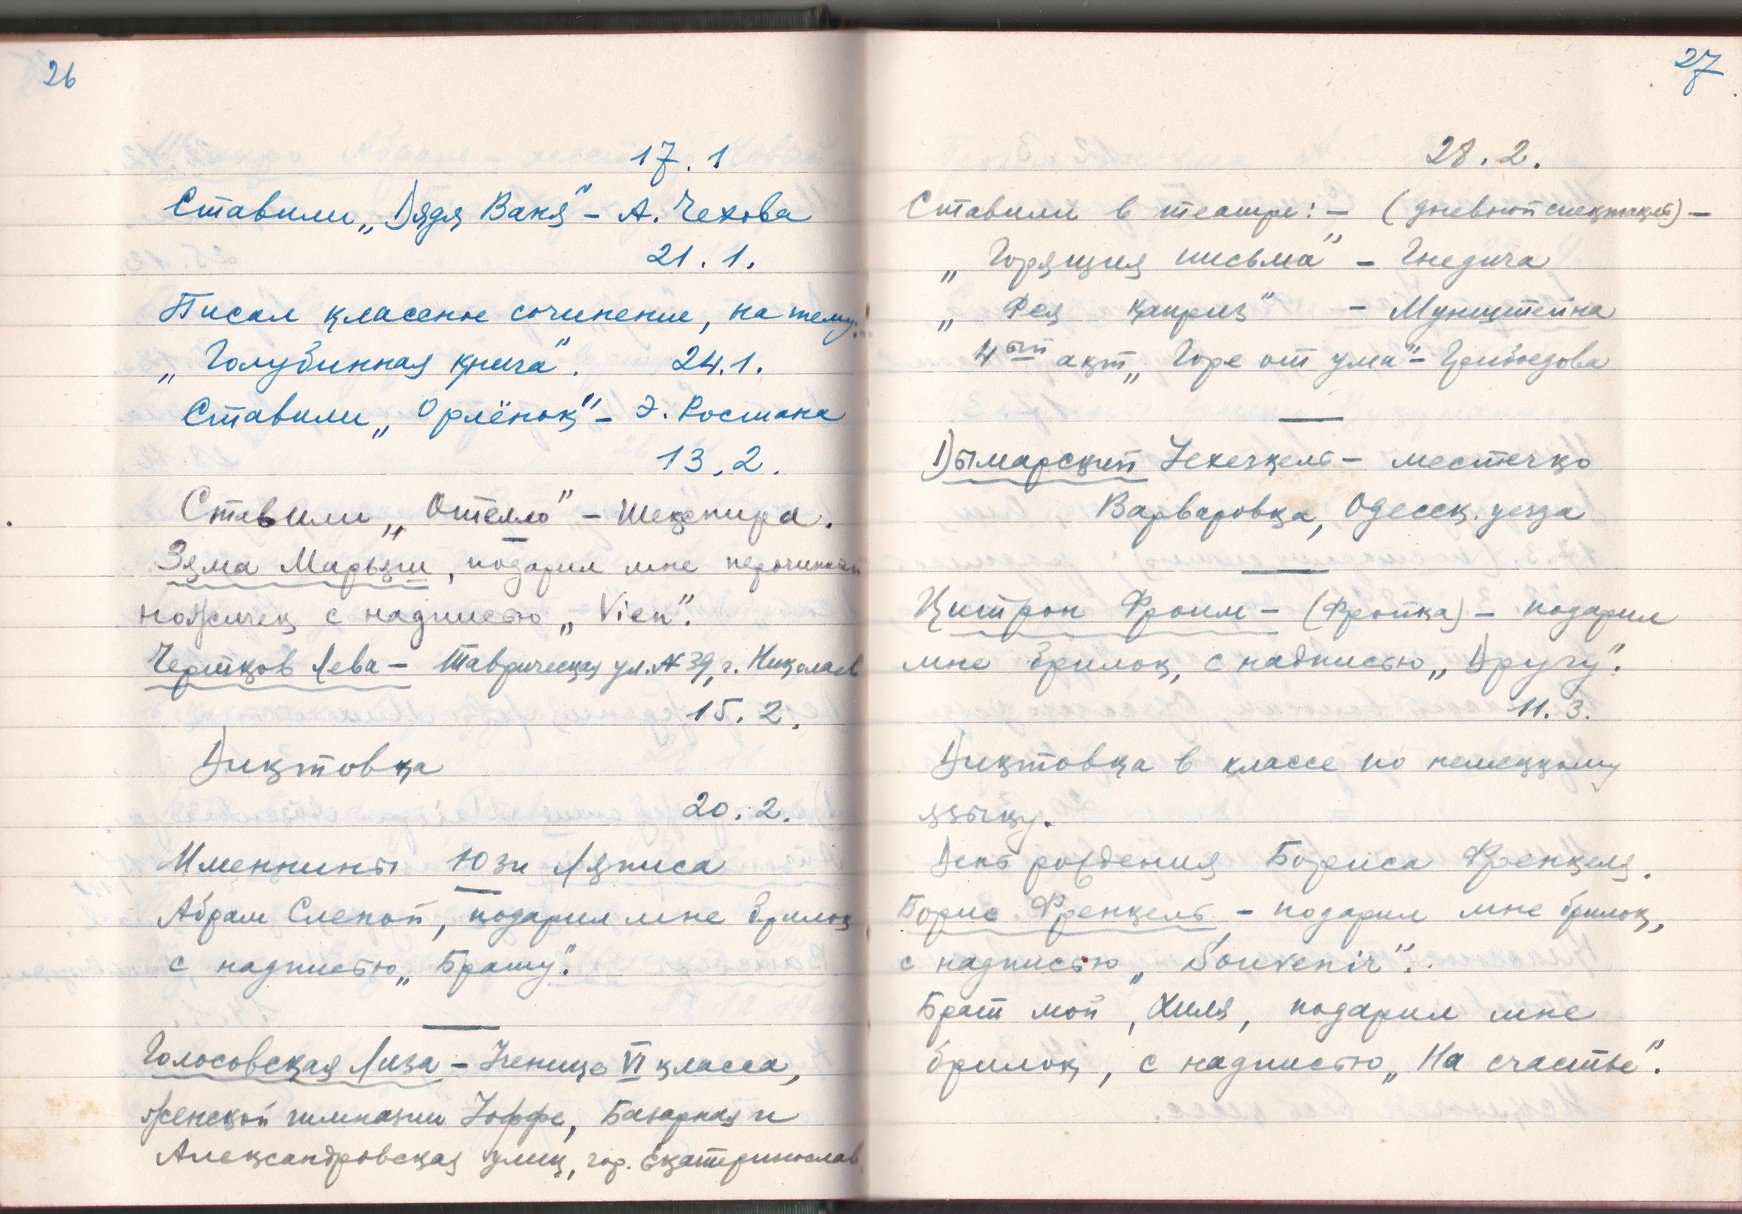 26
17.1
Ставили „Дядя Ваня" – А. Чехова
21.1.
Писал классное сочинение, на тему:
„Голубинная книга". 24.1.
Ставили „Орлёнок" – Э. Ростана
13.2.
Ставили „Отелло" – Шекспира.
Зяма Марьяш, подарил мне перочинный
ножичек с надписью „Vien".
Чертков Лева – Таврическая ул. № 39, г. Николаев
15.2.
Диктовка
20.2.
Именины Юзи Ляписа
Абрам Слепой, подарил мне брилок
с надписью „Брату".
Голосовская Лиза – Ученица VI класса,
женской гимназии Иоффе, Базарная и
Александровская улиц, гор. Екатеринослав.
27
28.2.
Ставили в театре: – (дневной спектакль) –
„Горящия письма" – Гнедича
„Фея каприз" – Мунштейна
4ый акт „Горе от ума" – Грибоедова
Дымарский Хехескель – местечко
Варваровка, Одесск. уезда
Цитрон Фроим – (Фройка) – подарил
мне брилок, с надписью „Другу".
11.3.
Диктовка в классе по немецкому
языку.
День рождения Бориса Френкеля.
Борис Френкель – подарил мне брилок,
с надписью „Souvenir".
Брат мой, Хиля, подарил мне
брилок, с надписью „На счастье".